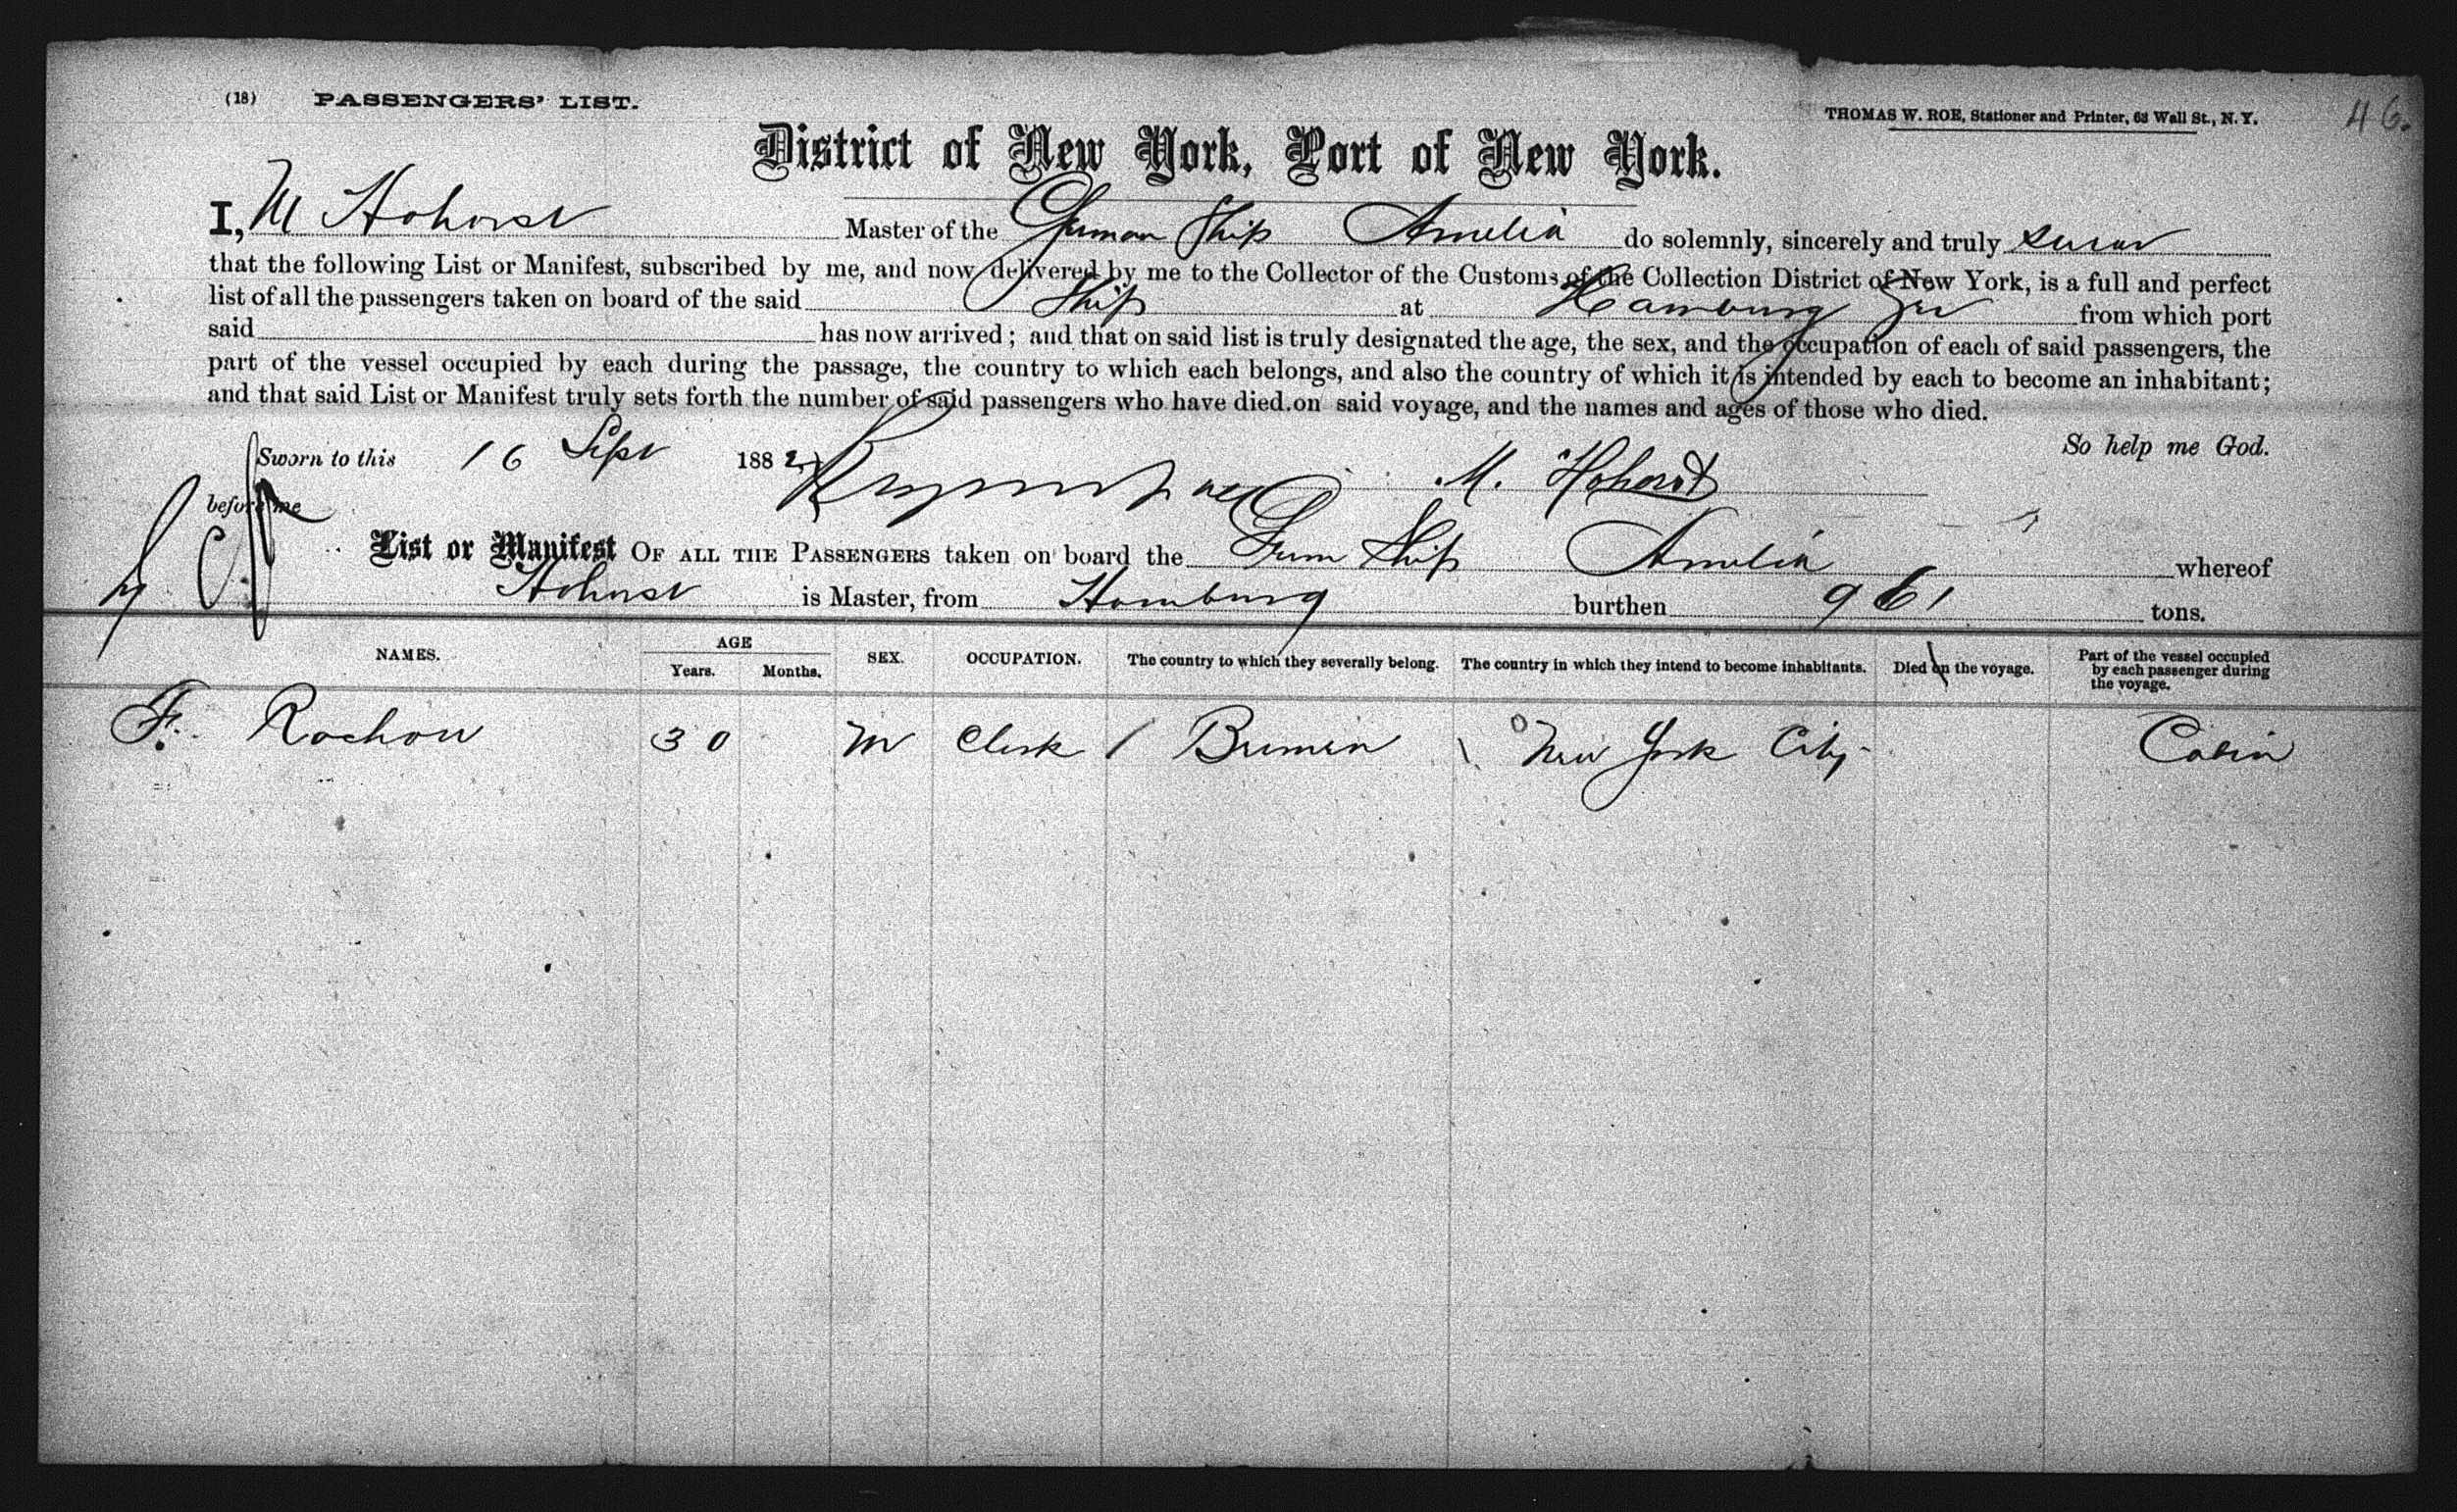 (18) PASSENGERS' LIST.
THOMAS W. ROE, Stationer and Printer, 63 Wall St., N. Y.
46.
District of New York, Port of New York.
I, M Hohorst Master of the German Ship Amelia do solemnly, sincerely and truly swear
that the following List or Manifest, subscribed by me, and now delivered by me to the Collector of the Customs of the Collection District of New York, is a full and perfect
list of all the passengers taken on board of the said Ship at Hamburg Ger from which port
said has now arrived; and that on said list is truly designated the age, the sex, and the occupation of each of said passengers, the
part of the vessel occupied by each during the passage, the country to which each belongs, and also the country of which it is intended by each to become an inhabitant;
and that said List or Manifest truly sets forth the number of said passengers who have died on said voyage, and the names and ages of those who died.
So help me God.
Sworn to this 16 Sept 1882 M. Hohorst
before me
List or Manifest OF ALL THE PASSENGERS taken on board the Germ Ship Amelia whereof
Hohorst is Master, from Hamburg burthen 961 tons.
NAMES. AGE Years. Months. SEX. OCCUPATION. The country to which they severally belong. The country in which they intend to become inhabitants. Died on the voyage. Part of the vessel occupied by each passenger during the voyage.
F. Rochow 30 M Clerk / Bremen \ New York City Cabin